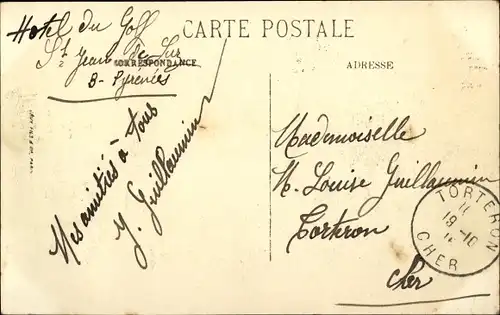 CARTE POSTALE
CORRESPONDANCE
ADRESSE
Hotel du Golf
St Jean de Luz
B-Pyrénées
Mes amitiés à tous
J. Guillaumin
Mademoiselle
M. Louise Guillaumin
Torteron
Cher
TORTERON
11
19-10
CHER